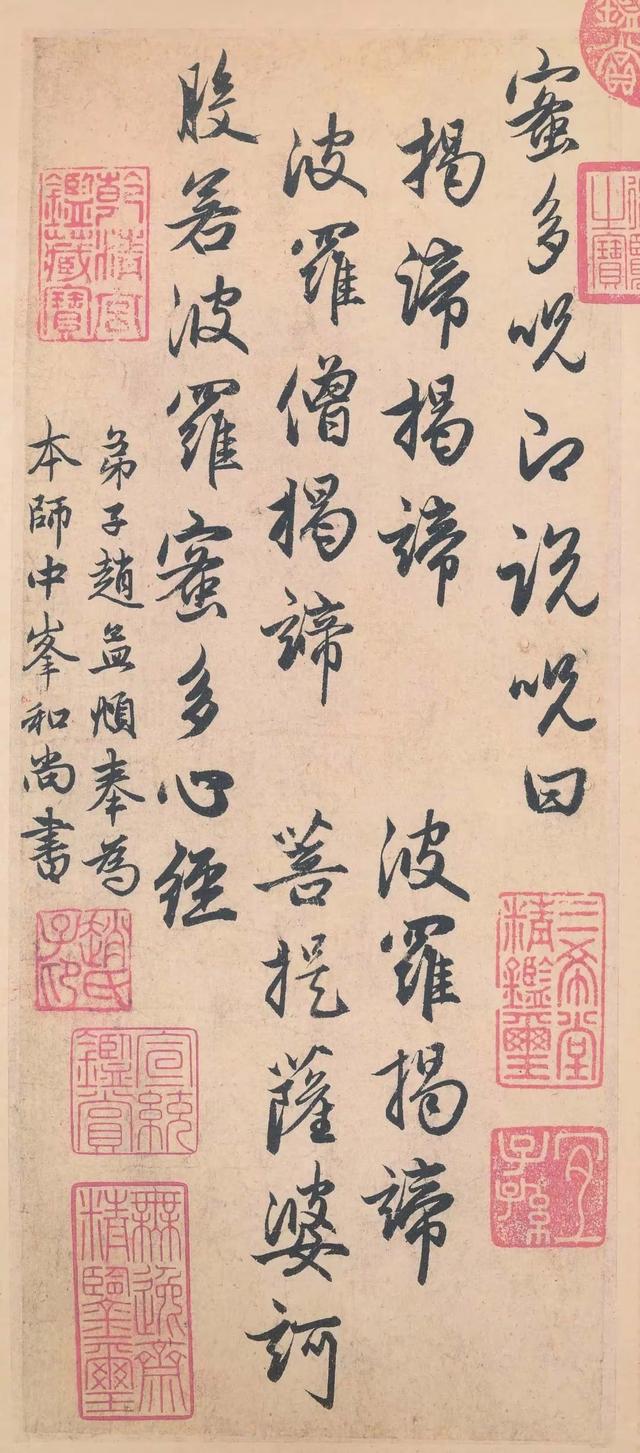 蜜多呪即说呪曰
揭諦揭諦　波羅揭諦
波羅僧揭諦　菩提薩婆訶
般若波羅蜜多心經
弟子趙孟頫奉為
本師中峯和尚書
乾清宮鑑藏寶
趙氏子印
宣統鑑賞
無逸齋精鑒璽
三希堂精鑑璽
宜子孫
鑑賞
之寶